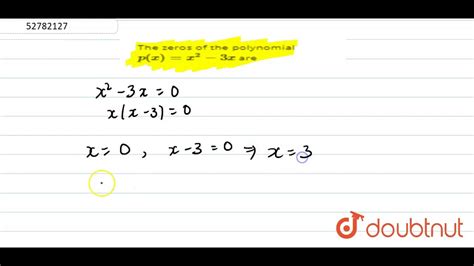 52782127
The zeros of the polynomial
p(x) = x² − 3x are
x² - 3x = 0
x(x-3) = 0
x = 0 , x - 3 = 0 ⇒ x = 3
doubtnut